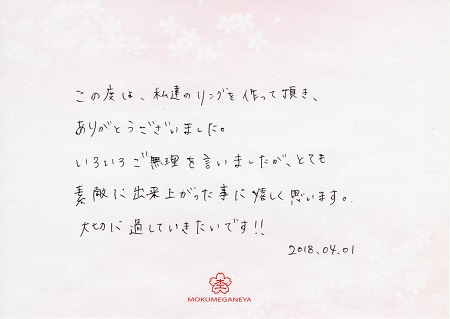 この度は、私達のリングを作って頂き、
ありがとうございました。
いろいろご無理を言いましたが、とても
素敵に出来上がった事に嬉しく思います。
大切に過していきたいです!!
2018.04.01
MOKUMEGANEYA